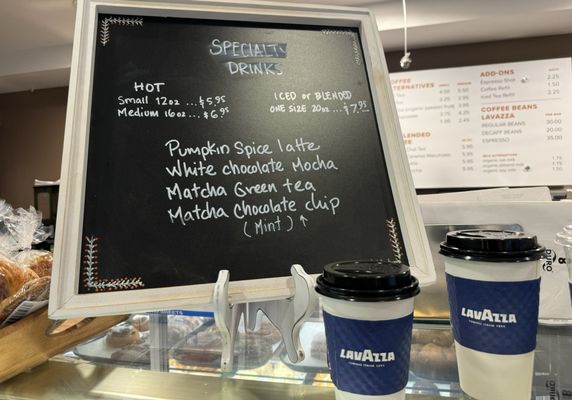 SPECIALTY
DRINKS
HOT
Small 12oz ... $5.95
Medium 16oz ... $6.95
ICED or BLENDED
ONE SIZE 20oz ... $7.95
Pumpkin Spice latte
White chocolate Mocha
Matcha Green tea
Matcha Chocolate chip
(Mint) ↑
ADD-ONS
Espresso Shot 2.25
Coffee Refill 1.50
Iced Tea Refill 2.25
COFFEE BEANS
LAVAZZA
REGULAR BEANS 30.00
DECAFF BEANS 20.00
ESPRESSO 35.00
LAVAZZA
LAVAZZA